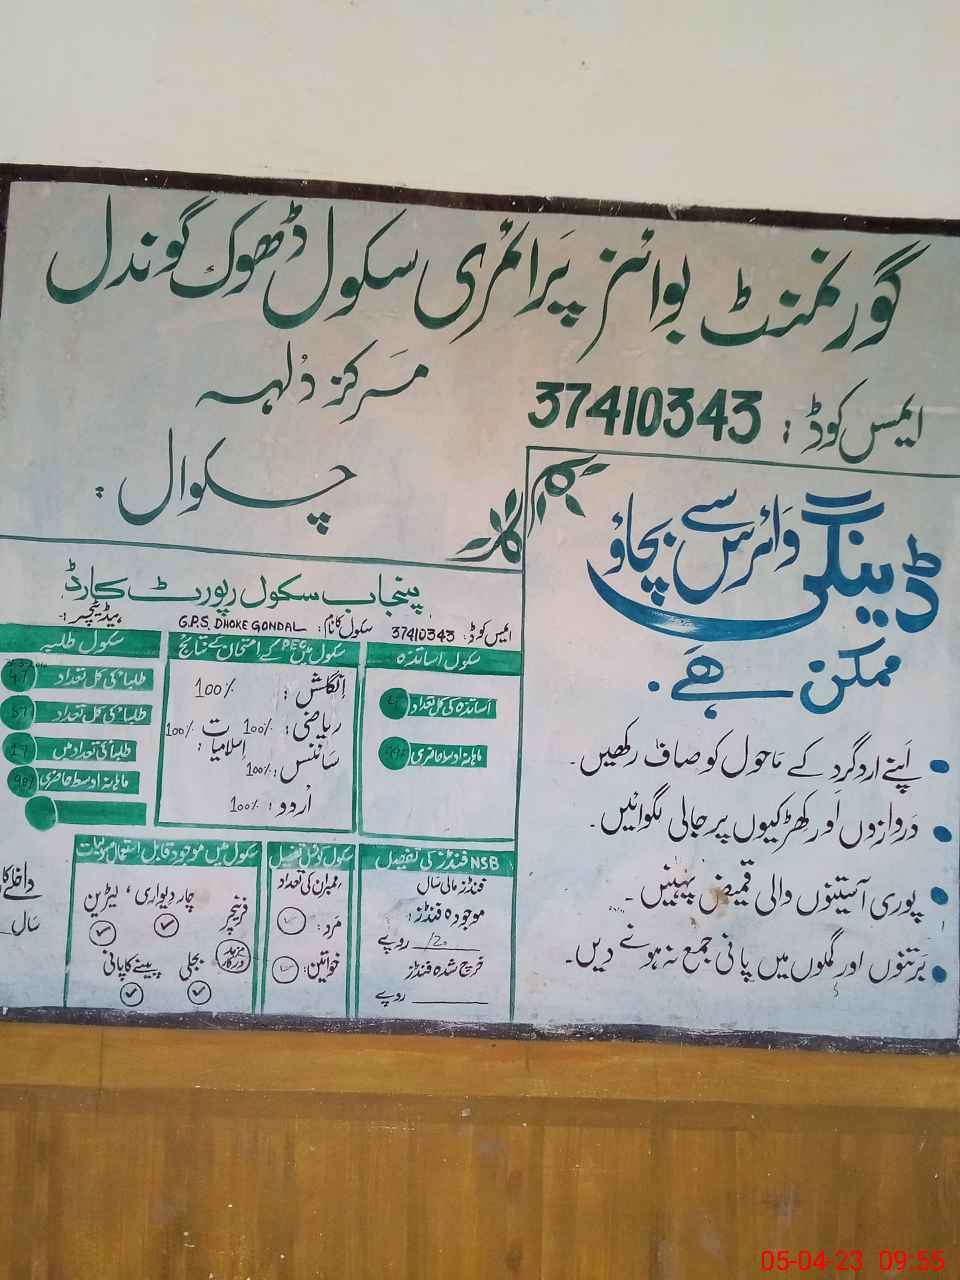 گورنمنٹ بوائز پرائمری سکول ڈھوک گوندل
ایمس کوڈ : 37410343
مرکز دُلہہ
چکوال :
ڈینگی وائرس سے بچاؤ
ممکن ہے .
اپنے اردگرد کے ماحول کو صاف رکھیں.
دروازوں اور کھڑکیوں پر جالی لگوائیں.
پوری آستینوں والی قمیض پہنیں.
برتنوں اور گملوں میں پانی جمع نہ ہونے دیں.
پنجاب سکول رپورٹ کارڈ
ایمس کوڈ: 37410343 سکول کا نام: G.P.S. DHOKE GONDAL ہیڈ ٹیچر:
سکول اساتذہ
اساتذہ کی کل تعداد
ماہانہ اوسط حاضری
سکول میں PEC کے امتحان کے نتائج
انگلش : 100%
ریاضی: 100%
اسلامیات : 100%
سائنس: 100%
اُردو: 100%
سکول طلبہ
طلباء کی کل تعداد
طلباء کی کل تعداد
طلباء کی تعداد میں
ماہانہ اوسط حاضری
NSB فنڈز کی تفصیل
فنڈز مالی سال
موجودہ فنڈز:
روپے
خرچ شدہ فنڈز
روپے
سکول کونسل تفصیل
ممبران کی تعداد
مرد:
خواتین:
سکول میں موجود قابل استعمال سہولیات
فرنیچر
مزید درکار
چار دیواری ، لیٹرین
بجلی
پینے کا پانی
داخلے کا
سال
05-04-23 09:55